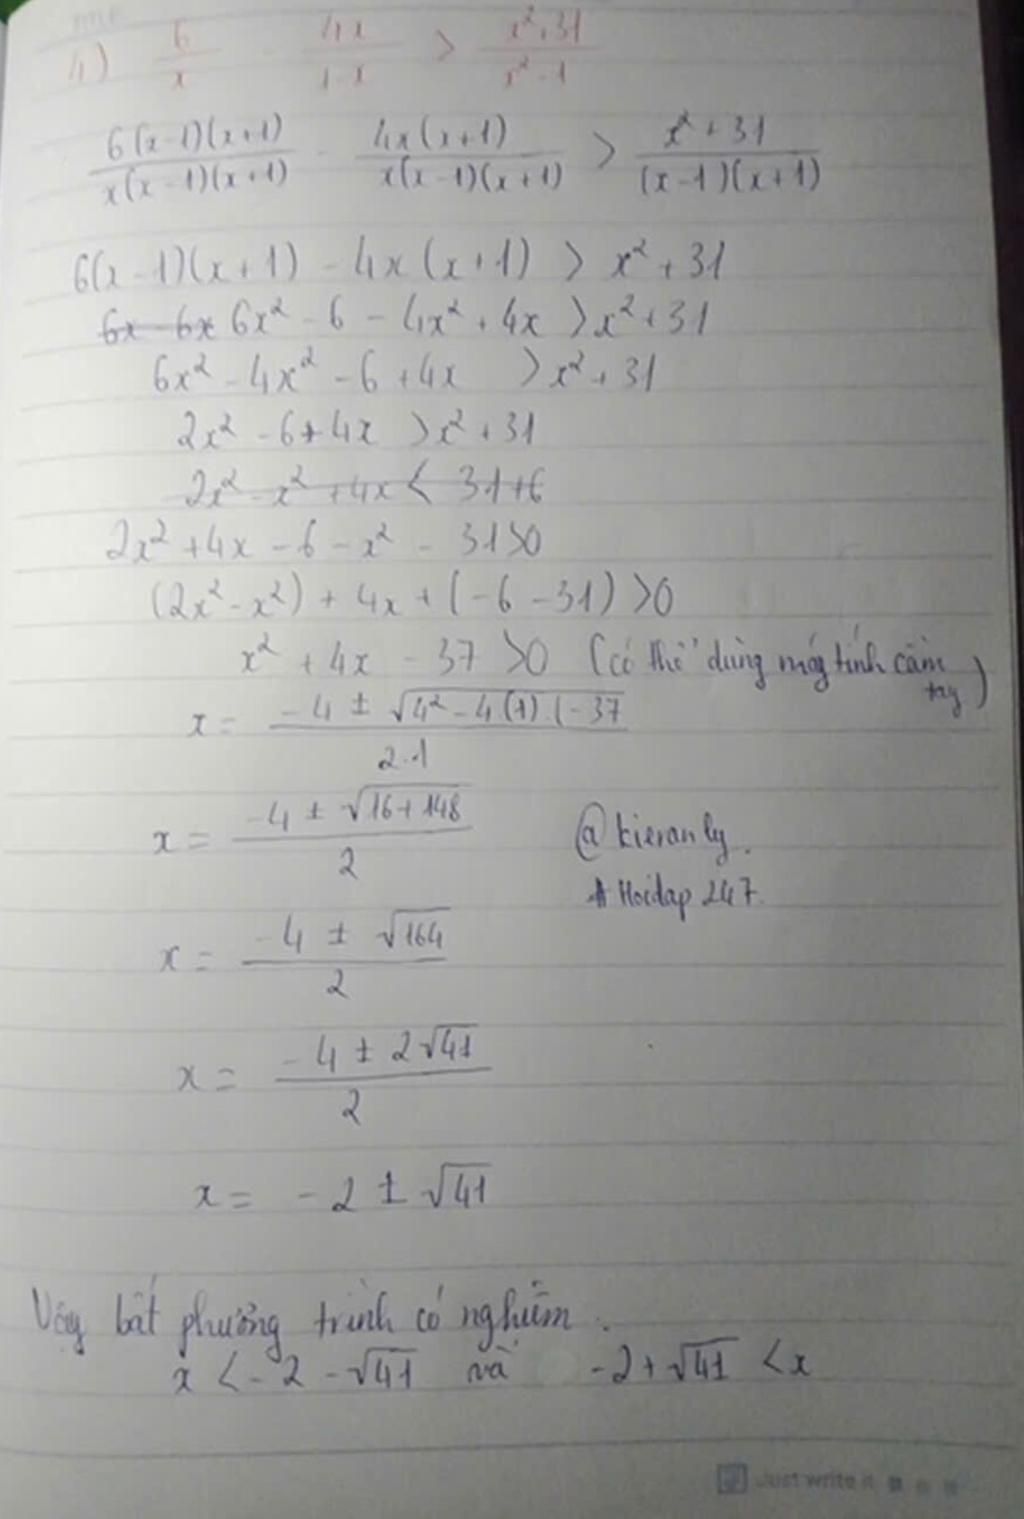 4) 6/x - 4x/1-x > x²+31/x²-1
6(x-1)(x+1)/x(x-1)(x+1) - 4x(x+1)/x(x-1)(x+1) > x²+31/(x-1)(x+1)
6(x-1)(x+1) - 4x(x+1) > x²+31
6x - 6x 6x² - 6 - 4x² + 4x > x²+31
6x² - 4x² - 6 + 4x > x²+31
2x² - 6 + 4x > x²+31
2x² - x² + 4x < 31+6
2x² + 4x - 6 - x² - 31 > 0
(2x² - x²) + 4x + (-6 - 31) > 0
x² + 4x - 37 > 0 (có thể dùng máy tính cầm tay)
x = -4 ± √4² - 4(1).(-37/2.1
x = -4 ± √16+148/2
@kieranly.
# Hoidap 247.
x = -4 ± √164/2
x = -4 ± 2√41/2
x = -2 ± √41
Vậy bất phương trình có nghiệm.
x < -2 - √41 và -2 + √41 < x
Just write it